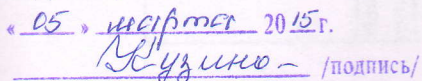 « 05 » марта 2015 г.
Кузино- /подпись/